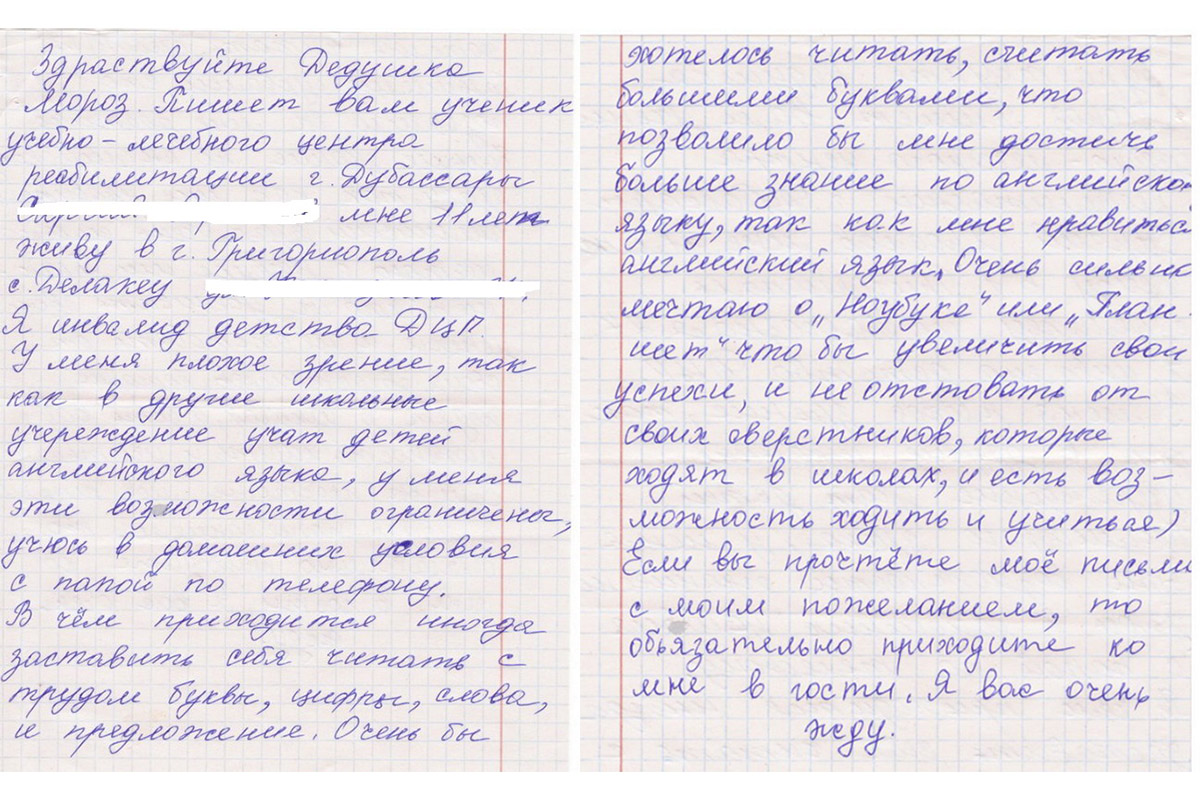 Здраствуйте Дедушка
Мороз. Пишет вам ученик
учебно-лечебного центра
реабилитации г. Дубассары
мне 11 лет
живу в г. Григориополь
с. Делакеу
Я инвалид детства ДЦП.
У меня плохое зрение, так
как в другие школьные
учереждение учат детей
английского языка, у меня
эти возможности ограничены,
учюсь в домашних условия
с папой по телефону.
В чём приходится иногда
заставить себя читать с
трудом буквы, цифры, слова,
и предложение. Очень бы
хотелось читать, считать
большими буквами, что
позволило бы мне достичь
больше знание по английско
языку, так как мне нравиться
английский язык, Очень сильно
мечтаю о „Ноубуке" или „План
шет" что бы увеличить свои
успехи, и не отстовать от
своих сверстников, которые
ходят в школах, и есть воз-
можность ходить и учиться)
Если вы прочтёте моё письмо
с моим пожеланием, то
обьязательно приходите ко
мне в гости. Я вас очень
жду.